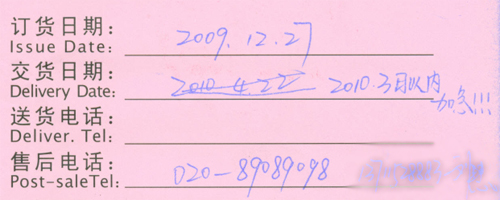 订货日期： 2009.12.27
Issue Date:
交货日期： 2010.4.22 2010.3月以内
Delivery Date: 加急!!!
送货电话：
Deliver. Tel:
售后电话： 020-89089098
Post-saleTel: